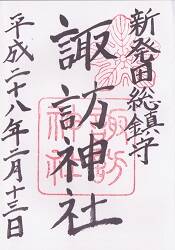 新発田総鎮守
諏訪神社
平成二十八年二月十三日
諏訪
神社